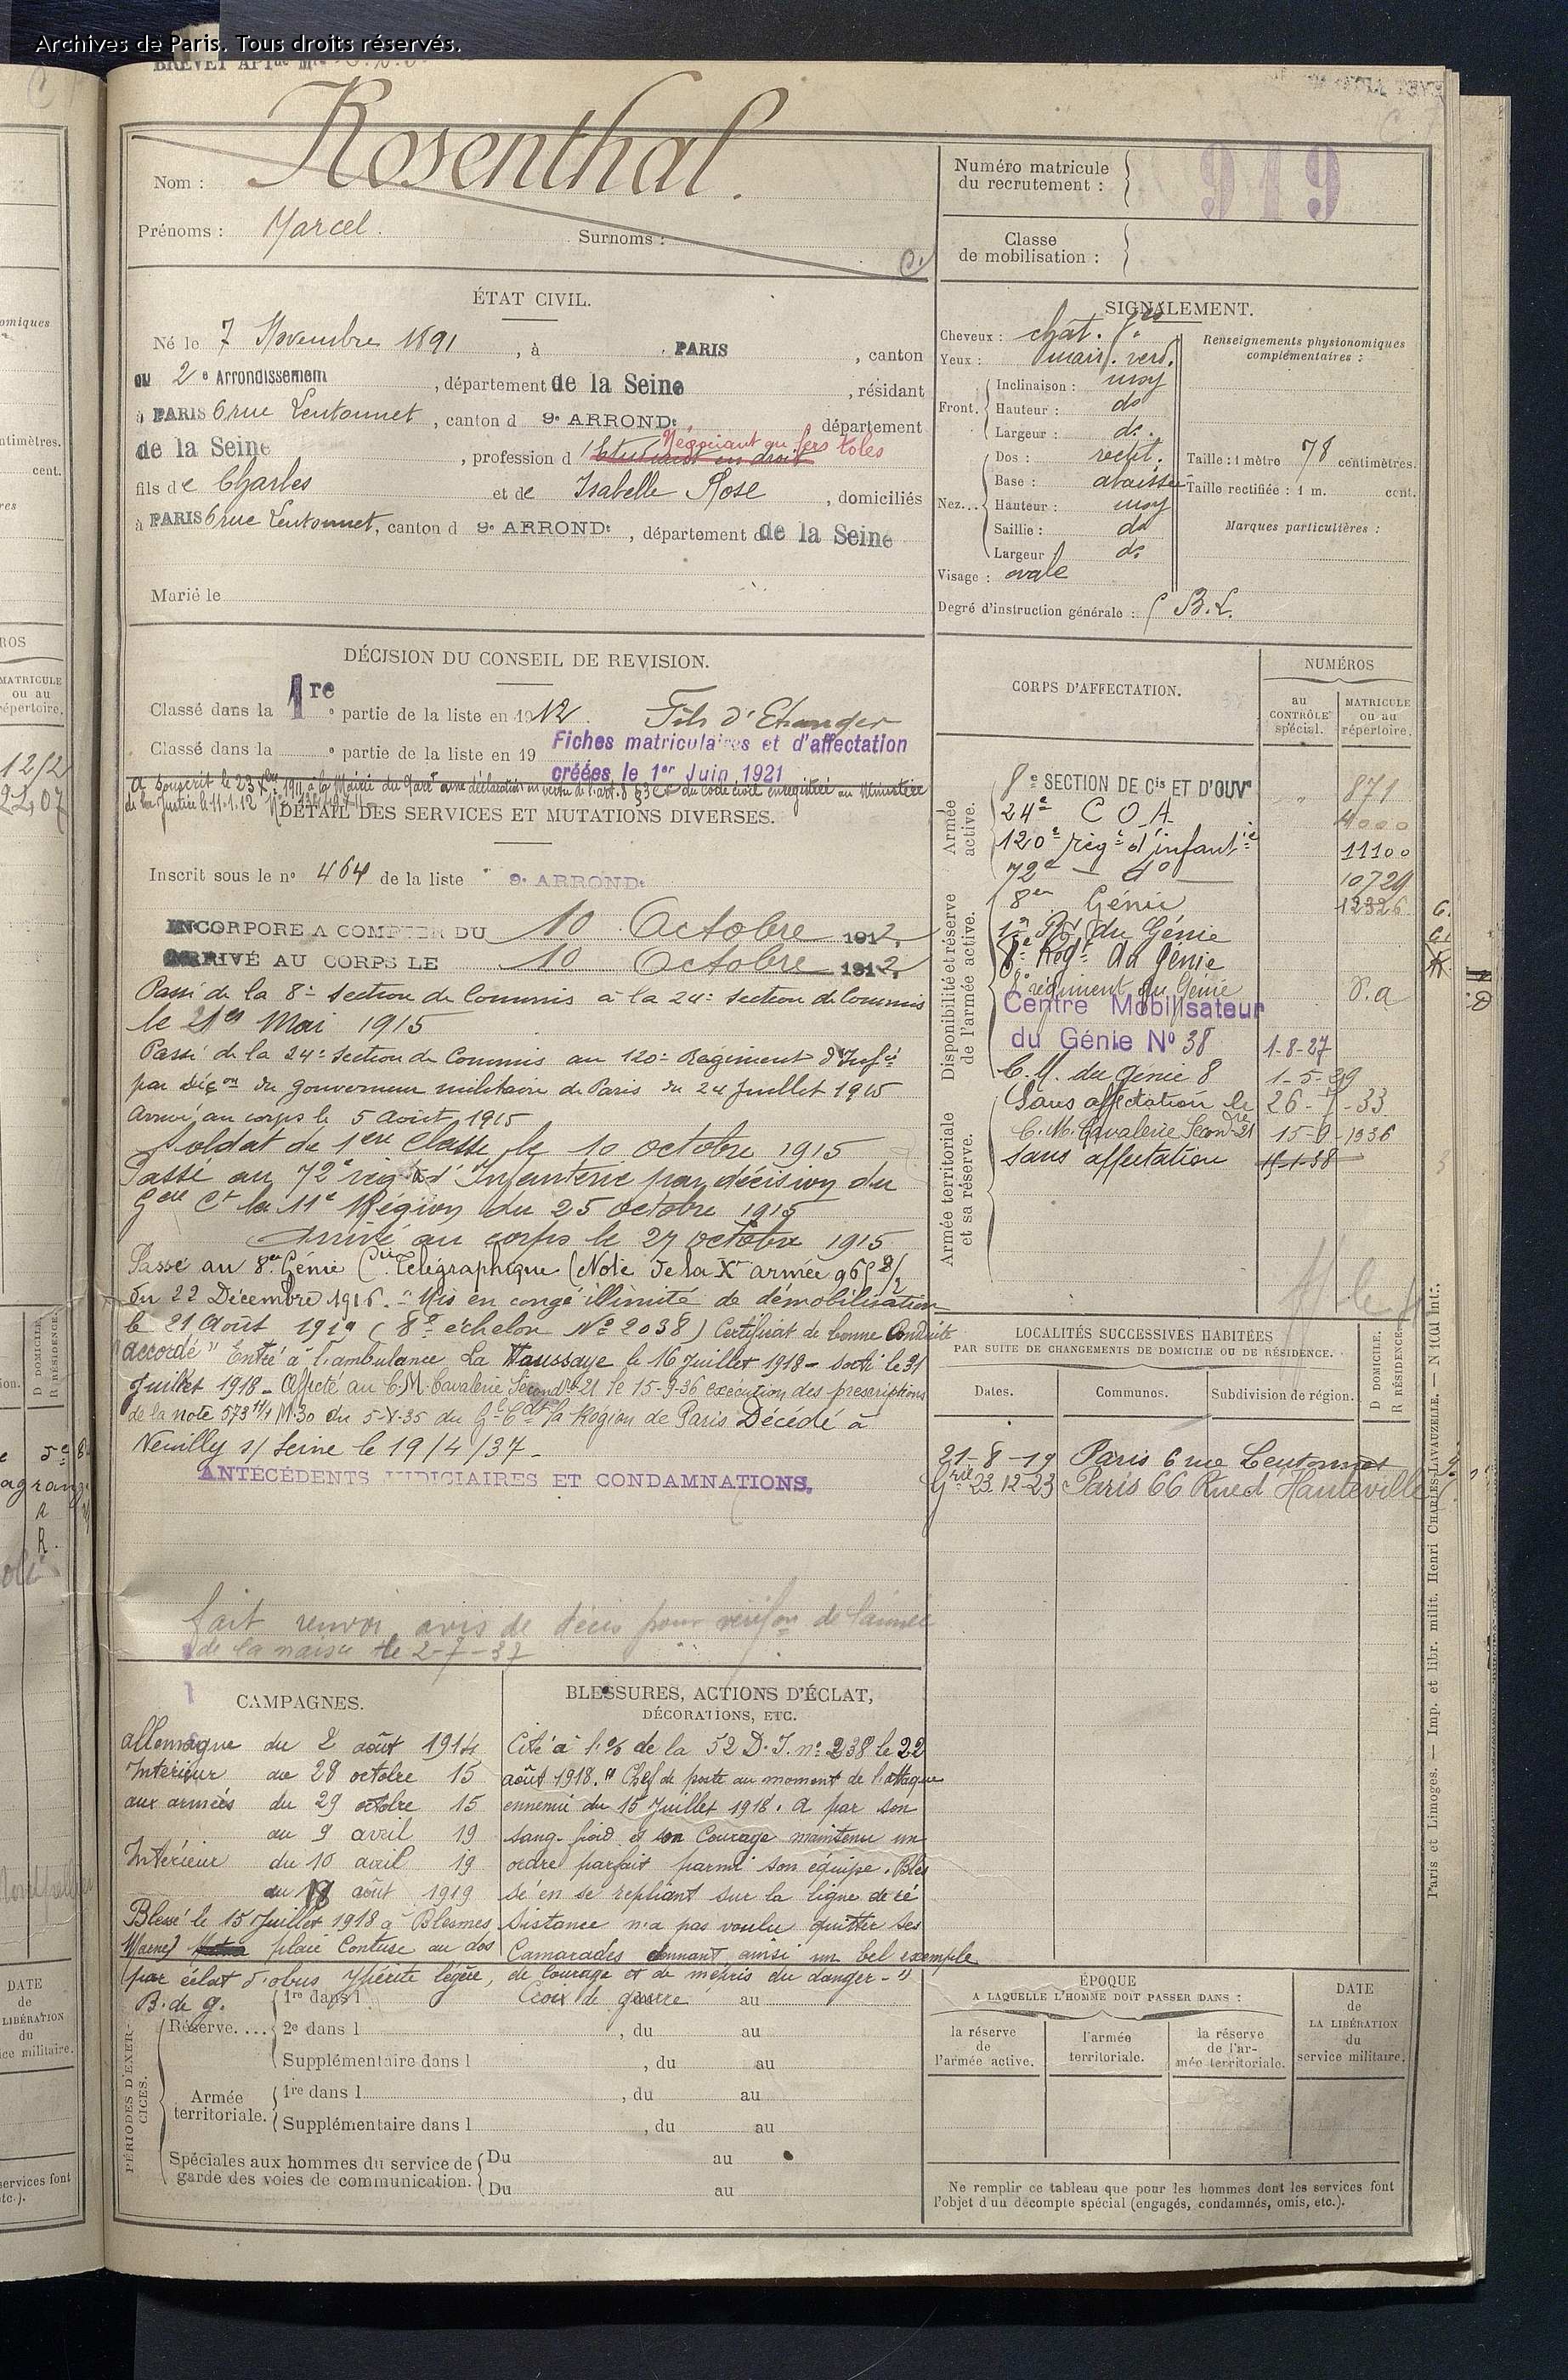 Archives de Paris. Tous droits réservés.
BREVET APTue Mre
Nom : Rosenthal.
Prénoms : Marcel. Surnoms :
Numéro matricule du recrutement : 919
Classe de mobilisation :
ÉTAT CIVIL.
Né le 7 Novembre 1891, à PARIS, canton
du 2e Arrondissement, département de la Seine, résidant
à PARIS 6 rue Lentonnet, canton d 9e ARRONDt département
de la Seine, profession d Etudiant en droit Négociant en fers toles
fils de Charles et de Isabelle Rose, domiciliés
à PARIS 6 rue Lentonnet, canton d 9e ARRONDt, département de la Seine
Marié le
SIGNALEMENT.
Cheveux : chât. f
Yeux : verd.
Front. Inclinaison : moy
Hauteur : do
Largeur : do.
Nez... Dos : rectil.
Base : abaissée
Hauteur : moy
Saillie : do
Largeur : do
Visage : ovale
Renseignements physionomiques
complémentaires :
Taille : 1 mètre 78 centimètres.
Taille rectifiée : 1 m. cent.
Marques particulières :
Degré d'instruction générale : B.L.
DÉCISION DU CONSEIL DE REVISION.
Classé dans la 1re partie de la liste en 1912. Fils d'Etranger
Classé dans la e partie de la liste en 19
Fiches matriculaires et d'affectation
créées le 1er Juin 1921
a souscrit le 23 1911 à la Mairie du 9e arrt une déclaration en vertu de l'art. 8 § 3 du code civil enregistrée au Ministère
de la Justice le 11.1.12
DÉTAIL DES SERVICES ET MUTATIONS DIVERSES.
Inscrit sous le no 464 de la liste 9e ARRONDt
INCORPORÉ A COMPTER DU 10 Octobre 1912.
ARRIVÉ AU CORPS LE 10 Octobre 1912.
Passé de la 8e Section de Commis à la 24e Section de Commis
le 21 Mai 1915
Passé de la 24e Section de Commis au 120e Régiment d'Infie
par Déçon du gouverneur militaire de Paris du 24 Juillet 1915
Arrivé au corps le 5 Août 1915
Soldat de 1ere Classe le 10 octobre 1915
Passé au 72e régt d'Infanterie par décision du
Gal Ct la 11e Région du 25 octobre 1915
Arrivé au corps le 27 octobre 1915
Passé au 8e Génie Cie Télégraphique (Note de la Xe armée 965
du 22 Décembre 1916. Mis en congé illimité de démobilisation
le 21 Août 1919 (8e échelon No 2038) Certificat de bonne Conduite
"accordé" Entré à l'ambulance La Haussaye le 16 Juillet 1918 - sorti le 31
Juillet 1918 - Affecté au C.M. Cavalerie Secondre 21 le 15-9-36 exécution des prescriptions
de la note 573 M.30 du 5-X-35 du Gal Cdt la Région de Paris Décédé à
Neuilly s/ Seine le 19/4/37 -
ANTÉCÉDENTS JUDICIAIRES ET CONDAMNATIONS.
fait renvoi avis de décès pour verifon de l'année
de la naisce le 2-7-37
CORPS D'AFFECTATION.
NUMÉROS
au CONTRÔLE spécial.
MATRICULE ou au répertoire.
Armée active.
8e SECTION DE Cis ET D'OUVrs 871
24e C O A 4000
120e régt d'infantie 11100
72e - do 10729
8e Génie 12326
Disponibilité et réserve de l'armée active.
1er Rgt du Génie
8e Régt du Génie
8e régiment du Génie S.a
Centre Mobilisateur
du Génie No 38 1-8-27
C.M. du Génie 8 1-5-29
Armée territoriale et sa réserve.
Sans affectation le 26-7-33
C.M. Cavalerie Secondre 21 15-9-1936
Sans affectation 15-1-38
LOCALITÉS SUCCESSIVES HABITÉES
PAR SUITE DE CHANGEMENTS DE DOMICILE OU DE RÉSIDENCE.
Dates. Communes. Subdivision de région. D DOMICILE. R RÉSIDENCE.
21-8-19 Paris 6 rue Lentonnet
Grie 23.12-23 Paris 66 Rue d'Hauteville
CAMPAGNES.
Allemagne du 2 août 1914
Intérieur au 28 octobre 15
aux armées du 29 octobre 15
au 9 avril 19
Intérieur du 10 avril 19
au août 1919
Blessé le 15 Juillet 1918 à Blesmes
(Marne) plaie Contuse au dos
par éclat d'obus Ypérité légère,
B. de g.
BLESSURES, ACTIONS D'ÉCLAT,
DÉCORATIONS, ETC.
Cité à l'o/ de la 52 D.I. no 238 le 22
août 1918. "Chef de poste au moment de l'attaque
ennemie du 15 Juillet 1918. A par son
sang-froid et son Courage maintenu un
ordre parfait parmi son équipe. Bles
sé en se repliant sur la ligne de ré
sistance n'a pas voulu quitter ses
Camarades donnant ainsi un bel exemple
de Courage et de mépris du danger -"
Croix de guerre
PÉRIODES D'EXERCICES.
Réserve.... 1re dans l au
2e dans l , du au
Supplémentaire dans l , du au
Armée territoriale. 1re dans l , du au
Supplémentaire dans l , du au
Spéciales aux hommes du service de
garde des voies de communication.
Du au
Du au
ÉPOQUE
A LAQUELLE L'HOMME DOIT PASSER DANS :
la réserve de l'armée active.
l'armée territoriale.
la réserve de l'armée territoriale.
DATE de LA LIBÉRATION du service militaire.
Ne remplir ce tableau que pour les hommes dont les services font
l'objet d'un décompte spécial (engagés, condamnés, omis, etc.).
Paris et Limoges. — Imp. et libr. milit. Henri CHARLES-LAVAUZELLE.